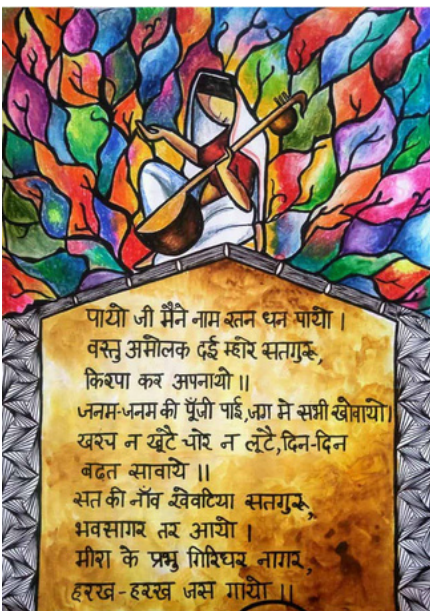 पायो जी मैंने नाम रतन धन पायो ।
वस्तु अमोलक दई म्हारे सतगुरू,
किरपा कर अपनायो ॥
जनम-जनम की पूँजी पाई,जग मे सभी खोवायो।
खरच न खूटै चोर न लूटै,दिन-दिन
बढ़त सावायो ॥
सत की नाँव खेवटिया सतगुरू,
भवसागर तर आयो ।
मीरा के प्रभु गिरिधर नागर,
हरख-हरख जस गायो ॥